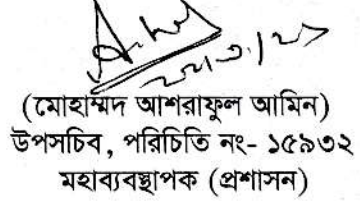 (মোহাম্মদ আশরাফুল আমিন)
উপসচিব, পরিচিতি নং- ১৫৯৩২
মহাব্যবস্থাপক (প্রশাসন)